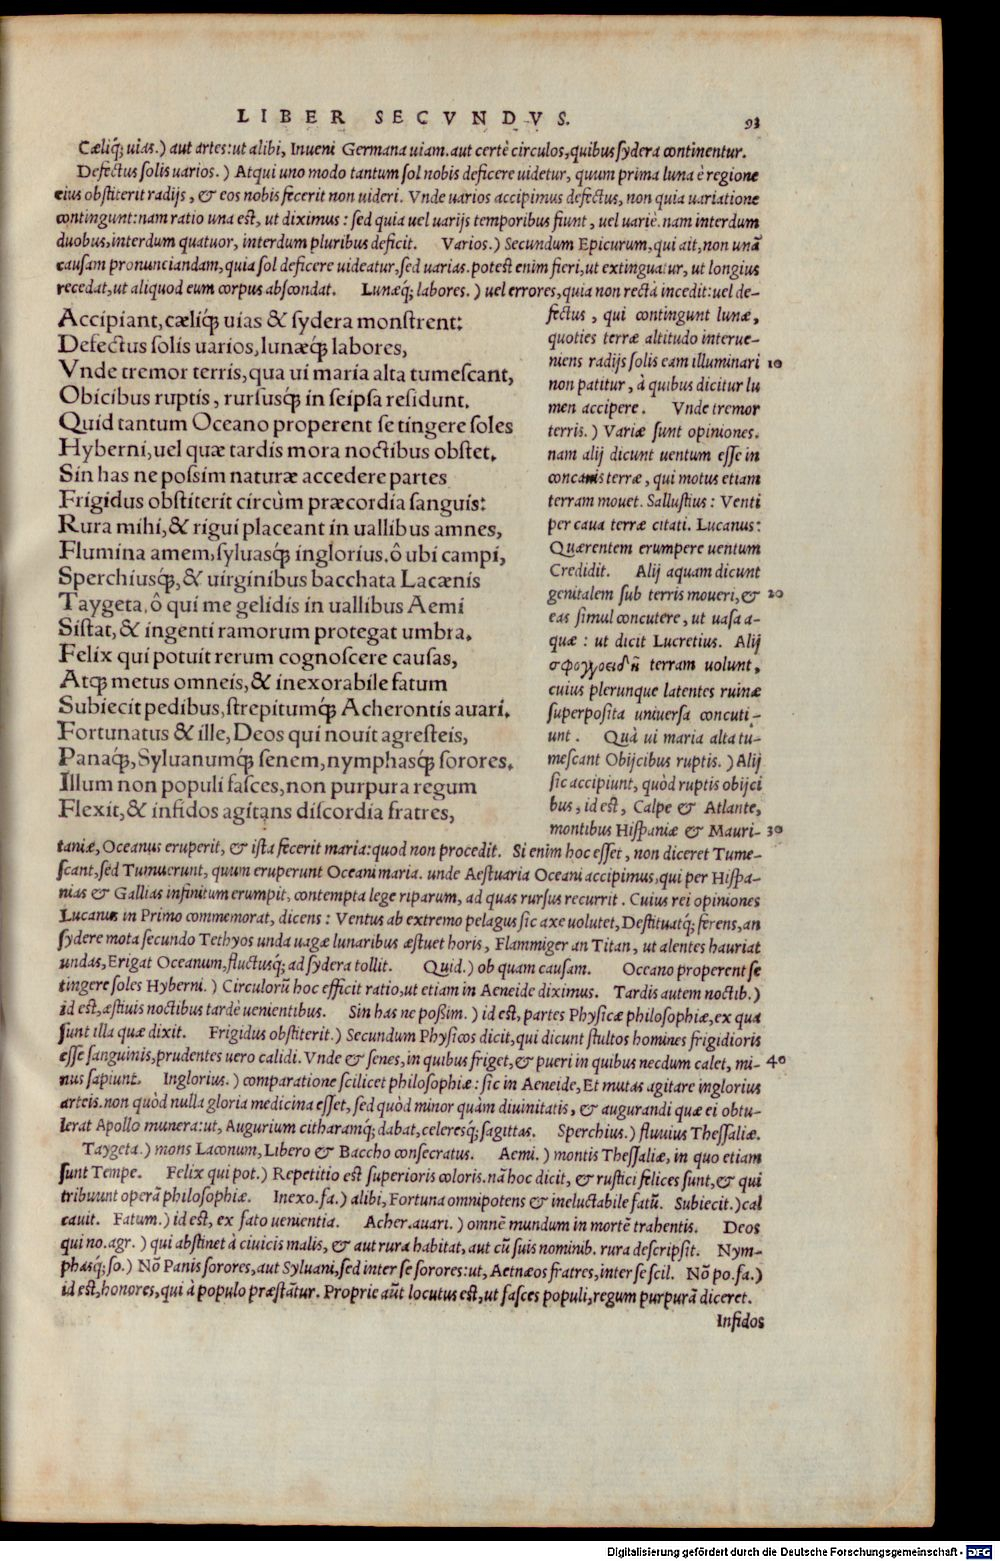 LIBER SECVNDVS. 93
Cæliq́; uias.) aut artes: ut alibi, Inueni Germana uiam. aut certè circulos, quibus sydera continentur.
Defectus solis uarios.) Atqui uno modo tantum sol nobis deficere uidetur, quum prima luna è regione
eius obstiterit radijs, & eos nobis fecerit non uideri. Vnde uarios accipimus defectus, non quia uariatione
contingunt: nam ratio una est, ut diximus: sed quia uel uarijs temporibus fiunt, uel uariè. nam interdum
duobus, interdum quatuor, interdum pluribus deficit. Varios.) Secundum Epicurum, qui ait, non unã
causam pronunciandam, quia sol deficere uideatur, sed uarias. potest enim fieri, ut extinguatur, ut longius
recedat, ut aliquod eum corpus abscondat. Lunæq́; labores.) uel errores, quia non rectà incedit: uel de-
Accipiant, cæliq́; uias & sydera monstrent:
Defectus solis uarios, lunæq́; labores,
Vnde tremor terris, qua ui maria alta tumescant,
Obicibus ruptis, rursusq́; in seipsa residunt.
Quid tantum Oceano properent se tingere soles
Hyberni, uel quæ tardis mora noctibus obstet.
Sin has ne possim naturæ accedere partes
Frigidus obstiterit circùm præcordia sanguis:
Rura mihi, & rigui placeant in uallibus amnes,
Flumina amem, syluasq́; inglorius. ô ubi campi,
Sperchiusq́;, & uirginibus bacchata Lacænis
Taygeta, ô qui me gelidis in uallibus Aemi
Sistat, & ingenti ramorum protegat umbra.
Felix qui potuit rerum cognoscere causas,
Atq; metus omneis, & inexorabile fatum
Subiecit pedibus, strepitumq́; Acherontis auari.
Fortunatus & ille, Deos qui nouit agresteis,
Panaq́;, Syluanumq́; senem, nymphasq́; sorores.
Illum non populi fasces, non purpura regum
Flexit, & infidos agitans discordia fratres,
fectus, qui contingunt lunæ,
quoties terræ altitudo interue-
niens radijs solis eam illuminari 10
non patitur, à quibus dicitur lu
men accipere. Vnde tremor
terris.) Variæ sunt opiniones.
nam alij dicunt uentum esse in
concauis terræ, qui motus etiam
terram mouet. Sallustius: Venti
per caua terræ citati. Lucanus:
Quærentem erumpere uentum
Credidit. Alij aquam dicunt
genitalem sub terris moueri, & 20
eas simul concutere, ut uasa a-
quæ: ut dicit Lucretius. Alij
terram uolunt,
cuius plerunque latentes ruinæ
superposita uniuersa concuti-
unt. Quà ui maria alta tu-
mescant Obijcibus ruptis.) Alij
sic accipiunt, quòd ruptis obijci
bus, id est, Calpe & Atlante,
montibus Hispaniæ & Mauri- 30
taniæ, Oceanus eruperit, & ista fecerit maria: quod non procedit. Si enim hoc esset, non diceret Tume-
scant, sed Tumuerunt, quum eruperunt Oceani maria. unde Aestuaria Oceani accipimus, qui per Hispa-
nias & Gallias infinitum erumpit, contempta lege riparum, ad quas rursus recurrit. Cuius rei opiniones
Lucanus in Primo commemorat, dicens: Ventus ab extremo pelagus sic axe uolutet, Destituatq́; ferens, an
sydere mota secundo Tethyos unda uagæ lunaribus æstuet horis, Flammiger an Titan, ut alentes hauriat
undas, Erigat Oceanum, fluctusq́; ad sydera tollit. Quid.) ob quam causam. Oceano properent se
tingere soles Hyberni.) Circulorũ hoc efficit ratio, ut etiam in Aeneide diximus. Tardis autem noctib.)
id est, æstiuis noctibus tardè uenientibus. Sin has ne possim.) id est, partes Physicæ philosophiæ, ex qua
sunt illa quæ dixit. Frigidus obstiterit.) Secundum Physicos dicit, qui dicunt stultos homines frigidioris
esse sanguinis, prudentes uero calidi. Vnde & senes, in quibus friget, & pueri in quibus necdum calet, mi- 40
nus sapiunt. Inglorius.) comparatione scilicet philosophiæ: sic in Aeneide, Et mutas agitare inglorius
arteis. non quòd nulla gloria medicina esset, sed quòd minor quàm diuinitatis, & augurandi quæ ei obtu-
lerat Apollo munera: ut, Augurium citharamq́; dabat, celeresq́; sagittas. Sperchius.) fluuius Thessaliæ.
Taygeta.) mons Laconum, Libero & Baccho consecratus. Aemi.) montis Thessaliæ, in quo etiam
sunt Tempe. Felix qui pot.) Repetitio est superioris coloris. nã hoc dicit, & rustici felices sunt, & qui
tribuunt operã philosophiæ. Inexo. fa.) alibi, Fortuna omnipotens & ineluctabile fatũ. Subiecit.) cal
cauit. Fatum.) id est, ex fato uenientia. Acher. auari.) omnẽ mundum in mortẽ trahentis. Deos
qui no. agr.) qui abstinet à ciuicis malis, & aut rura habitat, aut cũ suis nominib. rura descripsit. Nym-
phasq́; so.) Nõ Panis sorores, aut Syluani, sed inter se sorores: ut, Aetnæos fratres, inter se scil. Nõ po. fa.)
id est, honores, qui à populo præstãtur. Proprie aũt locutus est, ut fasces populi, regum purpurã diceret.
Infidos
Digitalisierung gefördert durch die Deutsche Forschungsgemeinschaft - DFG